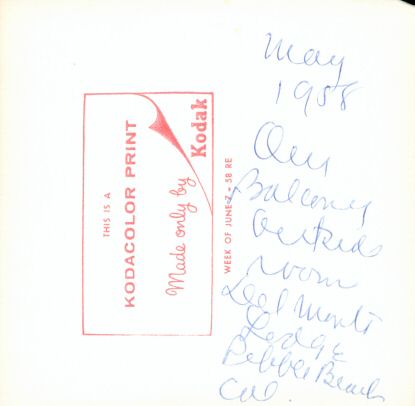 May
1958
Our
Balcony
Outside
room
Del Monte
Lodge
Pebble Beach
Cal.
THIS IS A
KODACOLOR PRINT
Made only by
Kodak
WEEK OF JUNE 7, 58 RE